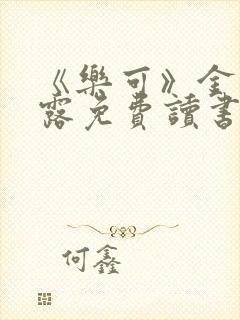 《樂可》金
露免費讀書
何鑫